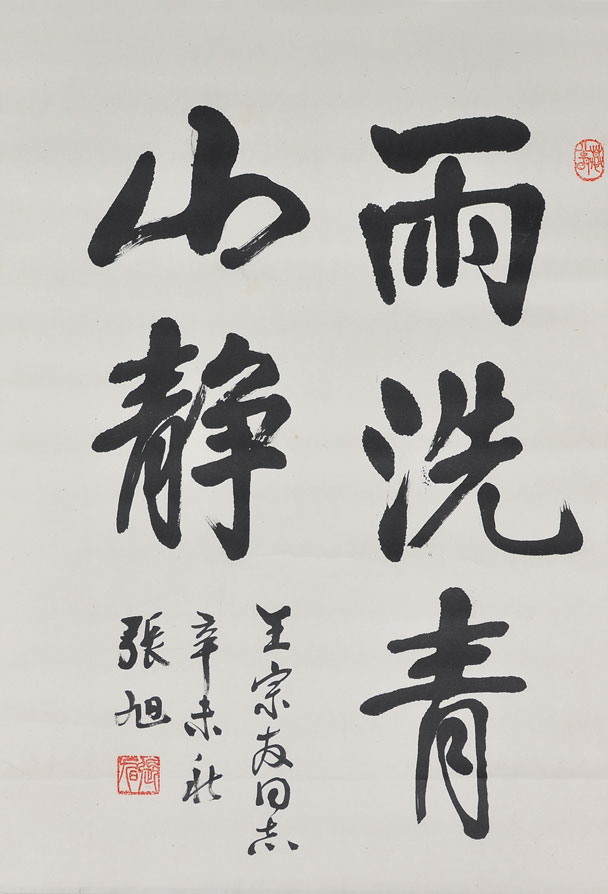 雨洗青
山静
王宗友同志
辛未秋
張旭